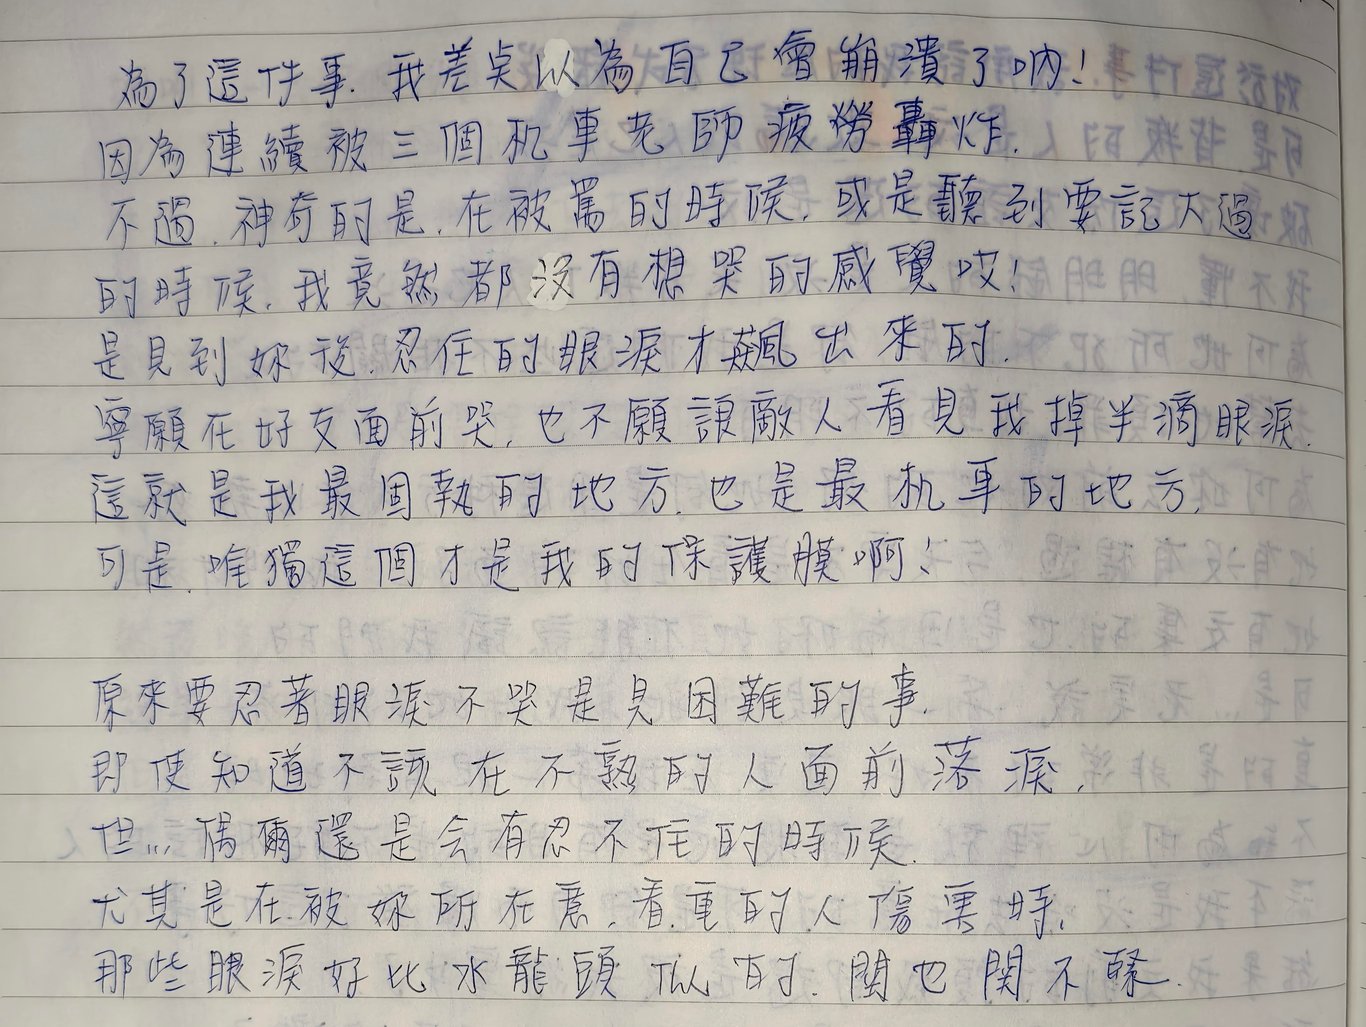 為了這件事.我差点以為自己會崩潰了吶!
因為連續被三個机車老師疲勞轟炸.
不過.神奇的是.在被罵的時候.或是聽到要記大過
的時候.我竟然都沒有想哭的感覺哎!
是見到妳後.忍住的眼淚才飆出來的.
寧願在好友面前哭.也不願讓敵人看見我掉半滴眼淚.
這就是我最固執的地方.也是最机車的地方.
可是.唯獨這個才是我的保護膜啊!
原來要忍著眼淚不哭是見困難的事.
即使知道不該在不熟的人面前落淚.
但...偶爾還是会有忍不住的時候.
尤其是在被妳所在意.看重的人傷害時.
那些眼淚好比水龍頭似的.關也關不緊.